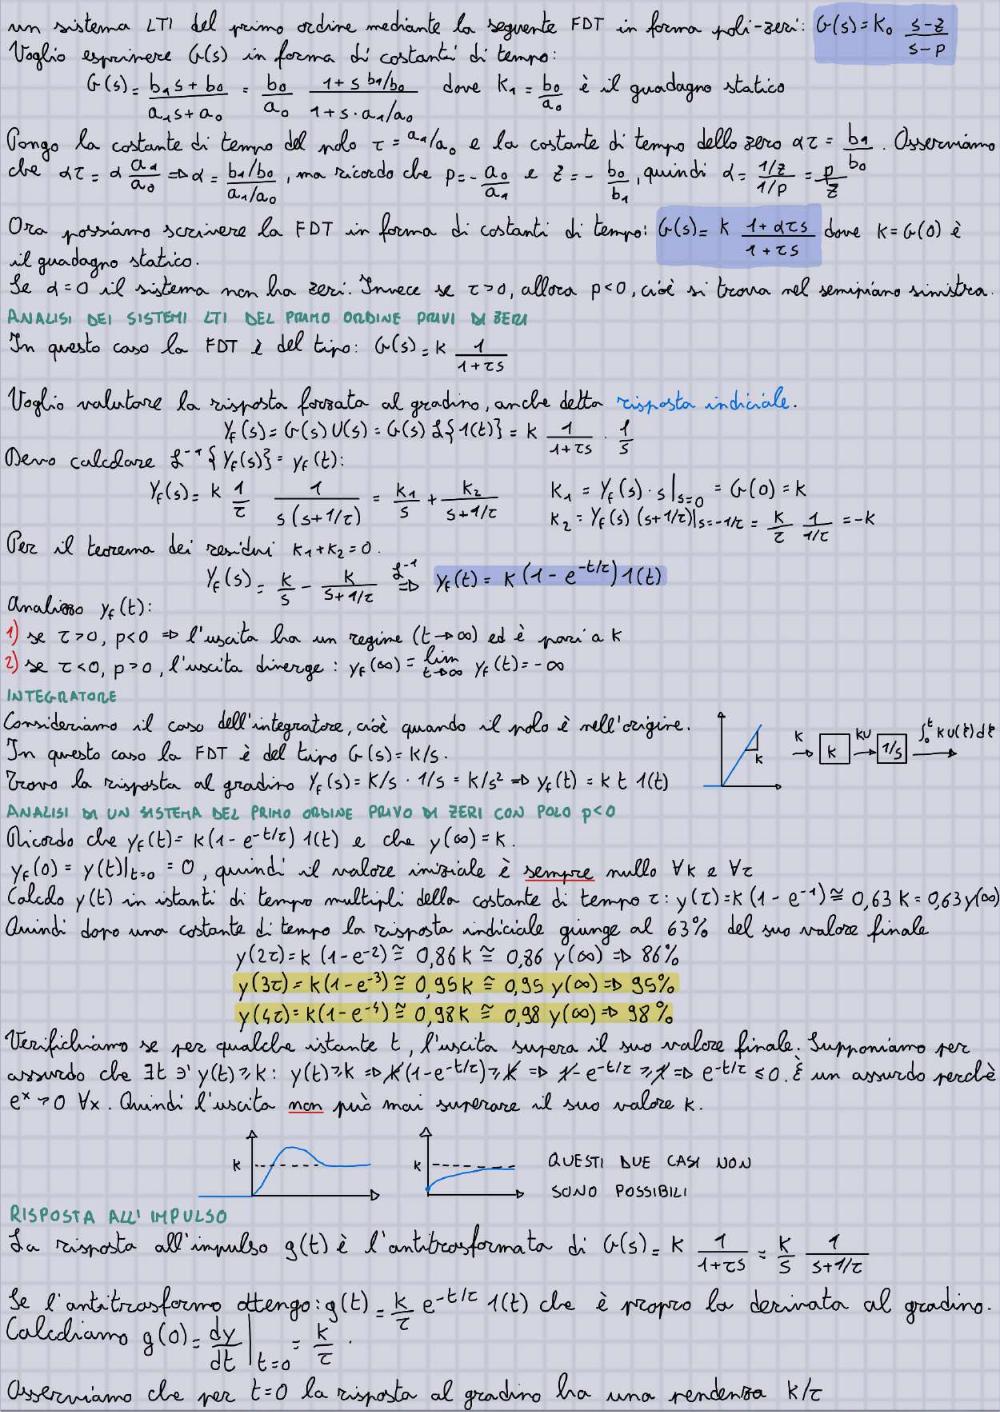 un sistema LTI del primo ordine mediante la seguente FDT in forma poli-zeri: G(s) = K₀ (s-z)/(s-p)
Voglio esprimere G(s) in forma di costanti di tempo:
G(s) = (b₁s + b₀)/(a₁s + a₀) = b₀/a₀ (1 + s b₁/b₀)/(1 + s·a₁/a₀) dove K₁ = b₀/a₀ è il guadagno statico
Pongo la costante di tempo del polo τ = a₁/a₀ e la costante di tempo dello zero ατ = b₁/b₀. Osserviamo
che ατ = α a₁/a₀ => α = (b₁/b₀)/(a₁/a₀), ma ricordo che p = - a₀/a₁ e z = - b₀/b₁, quindi α = (1/z)/(1/p) = p/z
Ora possiamo scrivere la FDT in forma di costanti di tempo: G(s) = K (1 + ατs)/(1 + τs) dove K = G(0) è
il guadagno statico.
Se α = 0 il sistema non ha zeri. Invece se τ>0, allora p<0, cioè si trova nel semipiano sinistra.
ANALISI DEI SISTEMI LTI DEL PRIMO ORDINE PRIVI DI ZERI
In questo caso la FDT è del tipo: G(s) = K 1/(1+τs)
Voglio valutare la risposta forzata al gradino, anche detta risposta indiciale.
Y_f(s) = G(s) U(s) = G(s) ℒ{1(t)} = K 1/(1+τs) · 1/s
Devo calcolare ℒ⁻¹{Y_f(s)} = y_f(t):
Y_f(s) = K 1/τ 1/(s(s+1/τ)) = K₁/s + K₂/(s+1/τ) K₁ = Y_f(s)·s|s=0 = G(0) = K
K₂ = Y_f(s)(s+1/τ)|s=-1/τ = K/τ 1/(1/τ) = -K
Per il teorema dei residui K₁+K₂=0.
Y_f(s) = K/s - K/(s+1/τ) ℒ⁻¹ => y_f(t) = K(1-e^(-t/τ))1(t)
Analizzo y_f(t):
1) se τ>0, p<0 => l'uscita ha un regime (t→∞) ed è pari a K
2) se τ<0, p>0, l'uscita diverge: y_f(∞) = lim t→∞ y_f(t) = -∞
INTEGRATORE
Consideriamo il caso dell'integratore, cioè quando il polo è nell'origine.
In questo caso la FDT è del tipo G(s) = K/s.
Trovo la risposta al gradino Y_f(s) = K/s · 1/s = K/s² => y_f(t) = K t 1(t)
K K K KU 1/s ∫₀ᵗ K U(t) dt
ANALISI DI UN SISTEMA DEL PRIMO ORDINE PRIVO DI ZERI CON POLO p<0
Ricordo che y_f(t) = K(1-e^(-t/τ)) 1(t) e che y(∞) = K.
y_f(0) = y(t)|t=0 = 0, quindi il valore iniziale è sempre nullo ∀K e ∀τ
Calcolo y(t) in istanti di tempo multipli della costante di tempo τ: y(τ) = K(1-e⁻¹) ≅ 0,63 K = 0,63 y(∞)
Quindi dopo una costante di tempo la risposta indiciale giunge al 63% del suo valore finale
y(2τ) = K(1-e⁻²) ≅ 0,86K ≅ 0,86 y(∞) => 86%
y(3τ) = K(1-e⁻³) ≅ 0,95K ≅ 0,95 y(∞) => 95%
y(4τ) = K(1-e⁻⁴) ≅ 0,98K ≅ 0,98 y(∞) => 98%
Verifichiamo se per qualche istante t, l'uscita supera il suo valore finale. Supponiamo per
assurdo che ∃t ∋' y(t) ≥ K: y(t) ≥ K => K(1-e^(-t/τ)) ≥ K => 1-e^(-t/τ) ≥ 1 => e^(-t/τ) ≤ 0. È un assurdo perchè
eˣ > 0 ∀x. Quindi l'uscita non può mai superare il suo valore K.
K K QUESTI DUE CASI NON
SONO POSSIBILI
RISPOSTA ALL'IMPULSO
La risposta all'impulso g(t) è l'antitrasformata di G(s) = K 1/(1+τs) = K/s 1/(s+1/τ)
Se l'antitrasformo ottengo: g(t) = K/τ e^(-t/τ) 1(t) che è propro la derivata al gradino.
Calcoliamo g(0) = dy/dt |t=0 = K/τ.
Osserviamo che per t=0 la risposta al gradino ha una pendenza K/τ